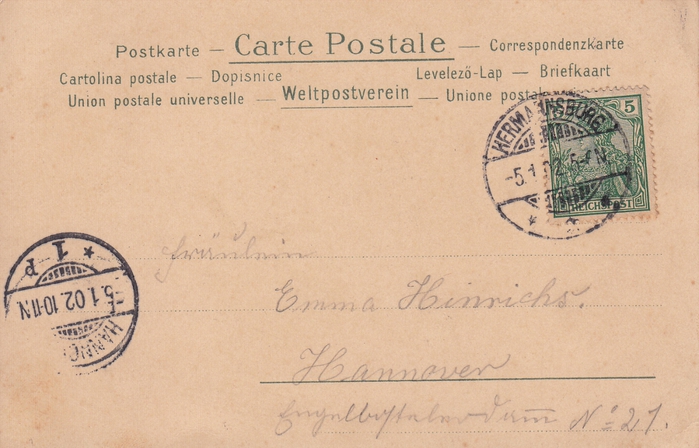 Postkarte — Carte Postale — Correspondenzkarte
Cartolina postale — Dopisnice Levelező-Lap — Briefkaart
Union postale universelle — Weltpostverein — Unione postale
5
REICHSPOST
HERMANNSBURG
-5.1.02.5-6N
1 P
5.1.02.10-11N
HANNO
Fräulein
Emma Hinrichs.
Hannover
Engelbostelerdam̅ No 21.